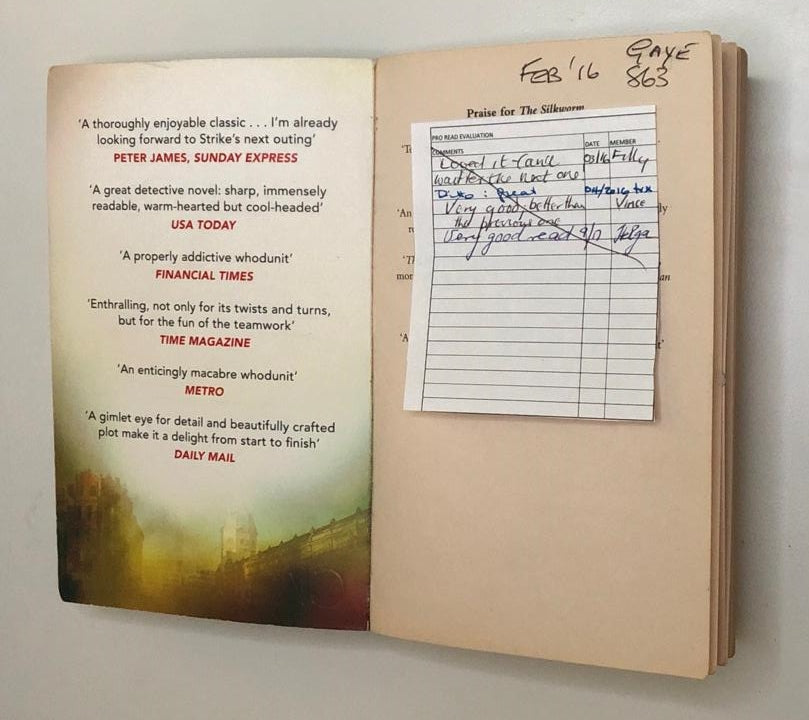 'A thoroughly enjoyable classic . . . I'm already
looking forward to Strike's next outing'
PETER JAMES, SUNDAY EXPRESS
'A great detective novel: sharp, immensely
readable, warm-hearted but cool-headed'
USA TODAY
'A properly addictive whodunit'
FINANCIAL TIMES
'Enthralling, not only for its twists and turns,
but for the fun of the teamwork'
TIME MAGAZINE
'An enticingly macabre whodunit'
METRO
'A gimlet eye for detail and beautifully crafted
plot make it a delight from start to finish'
DAILY MAIL
FEB '16 GAYE
863
Praise for The Silkworm
PRO READ EVALUATION
COMMENTS DATE MEMBER
Loved it - can't 03/16 Filly
wait for the next one
Ditto : Great 04/2016
Very good, better than Vince
the previous one
Very good read 9/17 Helga
'An
mor
an
'A